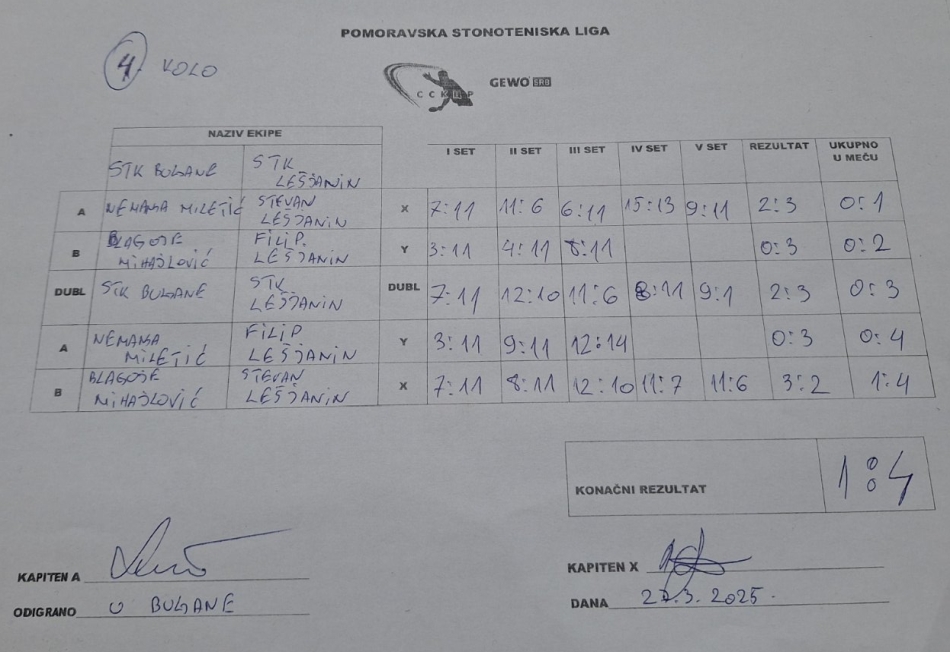 POMORAVSKA STONOTENISKA LIGA
4 KOLO
CCKUP GEWO SRB
NAZIV EKIPE I SET II SET III SET IV SET V SET REZULTAT UKUPNO U MEČU
STK BUĐANE STK LEŠJANIN
A NEMANJA MILETIĆ STEVAN LEŠJANIN X 7:11 11:6 6:11 15:13 9:11 2:3 0:1
B BLAGOJE MIHAJLOVIĆ FILIP. LEŠJANIN Y 3:11 4:11 8:11 0:3 0:2
DUBL STK BUĐANE STK LEŠJANIN DUBL 7:11 12:10 11:6 8:11 9:1 2:3 0:3
A NEMANJA MILETIĆ FILIP LEŠJANIN Y 3:11 9:11 12:14 0:3 0:4
B BLAGOJE MIHAJLOVIĆ STEVAN LEŠJANIN X 7:11 8:11 12:10 11:7 11:6 3:2 1:4
KONAČNI REZULTAT 1:4
KAPITEN A
KAPITEN X
ODIGRANO U BUĐANE
DANA 27.3.2025.